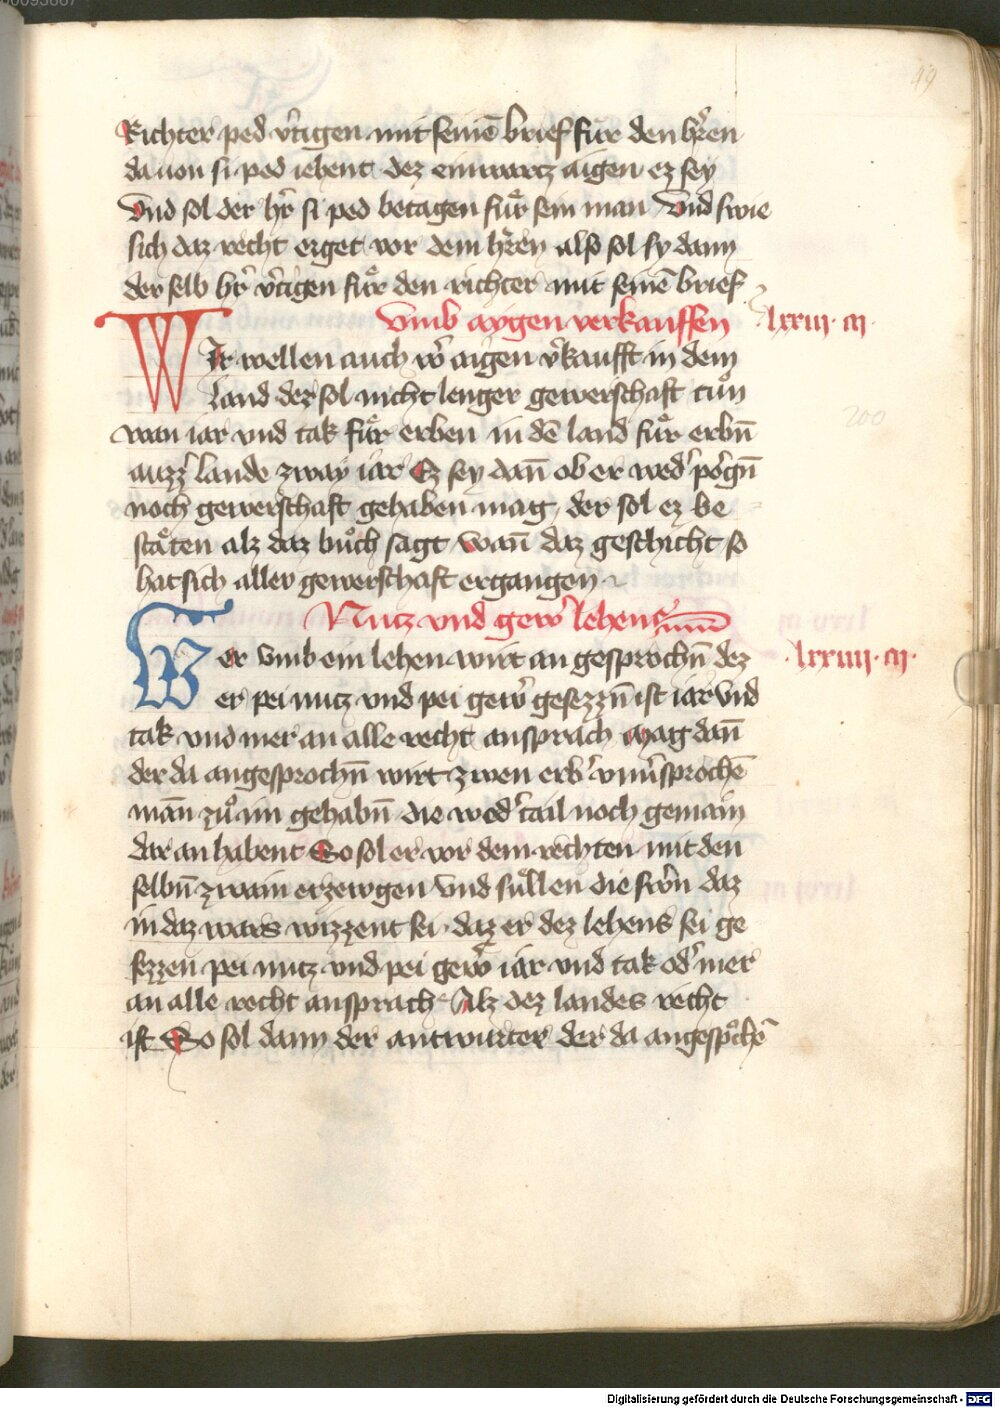 49
Richter ped v̓tigen mit seinē brief für den hr̓en
da uon si ped iehent dez ein wartz aigen ez sey
Vnd sol der hr̓ si ped betagen fuͤr sein man Vnd swie
sich daz recht erget vor dem hr̓en also sol sy dann
der selb hr̓ v̓tigen fuͤr den richter mit seinē brief
Vmb aygen verkauffen lxxiii · m ·
WIr wellen auch wˀ aigen v̓kaufft in dem
Land der sol nicht lenger gewerschaft tuͦn
wan iar vnd tak fuͤr erben in dē land fuͤr erbn̄
auzzˀ lande zway iar Ez sey dan̄ ob er wedˀ porgn̄
noch gewerschaft gehaben mag der sol ez be
staͤten alz daz buͦch sagt wan̄ daz geschicht so
hat sich aller gewerschaft ergangen
Nutz vnd gewˀ lehens
Wer vmb ein lehen wirt an gesprochn̄ dez · lxxiiii · m ·
er pei nutz vnd pei gewˀ gesezzn̄ ist iar vnd
tak vnd mer an alle recht ansprach Mag dan̄
der da angesprochn̄ wirt zwen erbˀ vnuˀsprochē
man̄ zuͦ im gehabn̄ die wedˀ tail noch gemain
dar an habent So sol er vor dem rechten mit den
selbn̄ zwain erzewgen Vnd suͤllen die swˀn daz
in daz wars wizzent sei daz er dez lehens sei ge
sezzen pei nutz vnd pei gewˀ iar vnd tak odˀ mer
an alle recht ansprach Alz dez landes recht
ist So sol dann der antwurter der da angesprͦchē
200
Digitalisierung gefördert durch die Deutsche Forschungsgemeinschaft - DFG